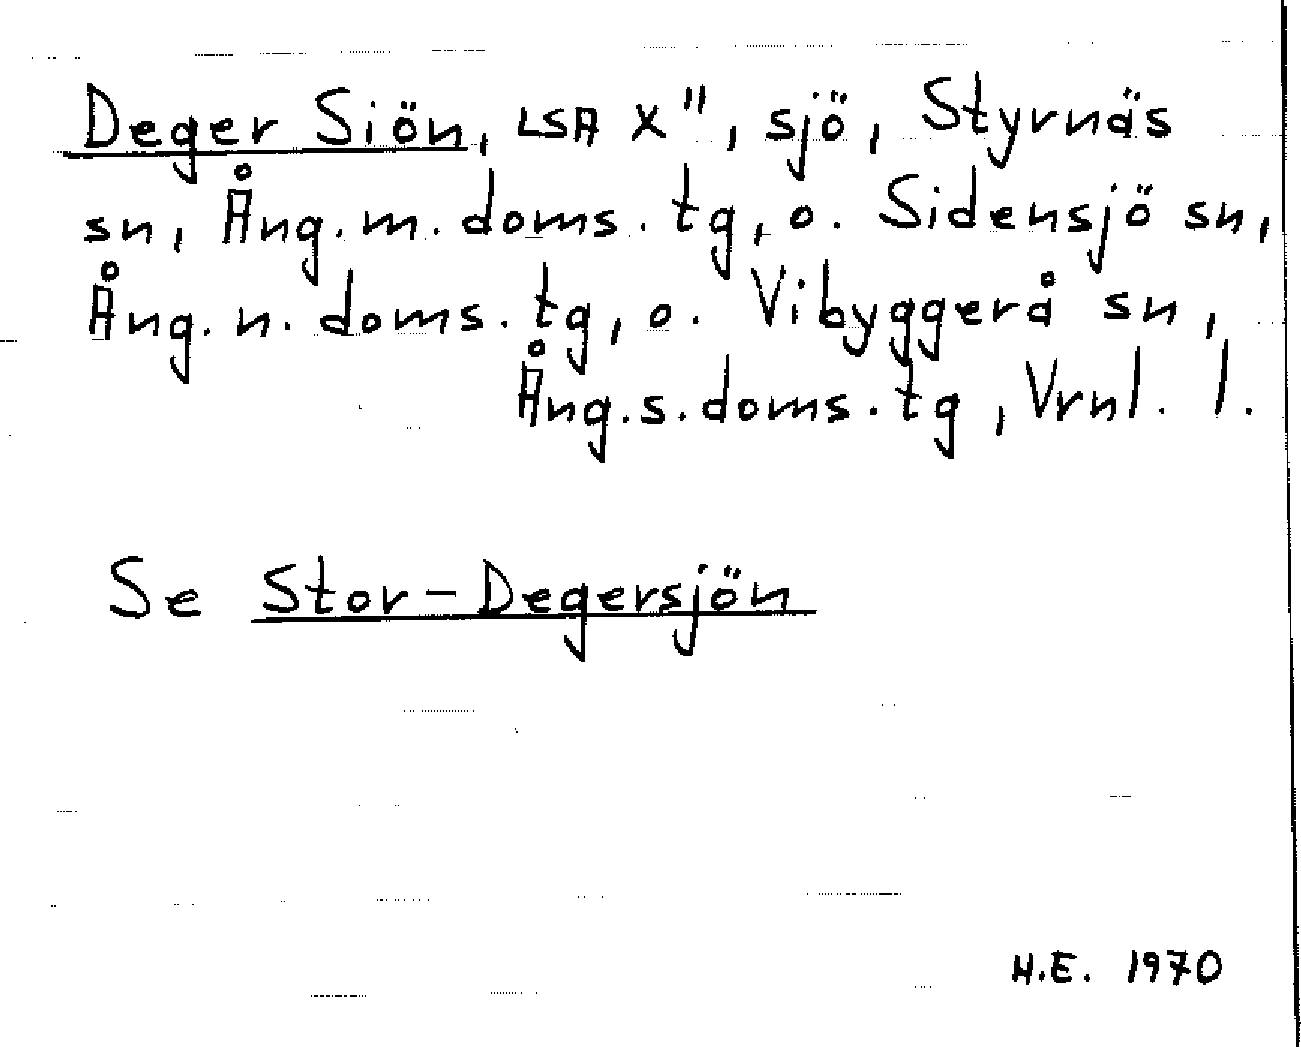 Deger Siön, LSA X", sjö, Styrnäs
sn, Ång.m.doms.tg, o. Sidensjö sn,
Ång.n.doms.tg, o. Vibyggerå sn,
Ång.s.doms.tg, Vrnl. l.
Se Stor-Degersjön
H.E. 1970